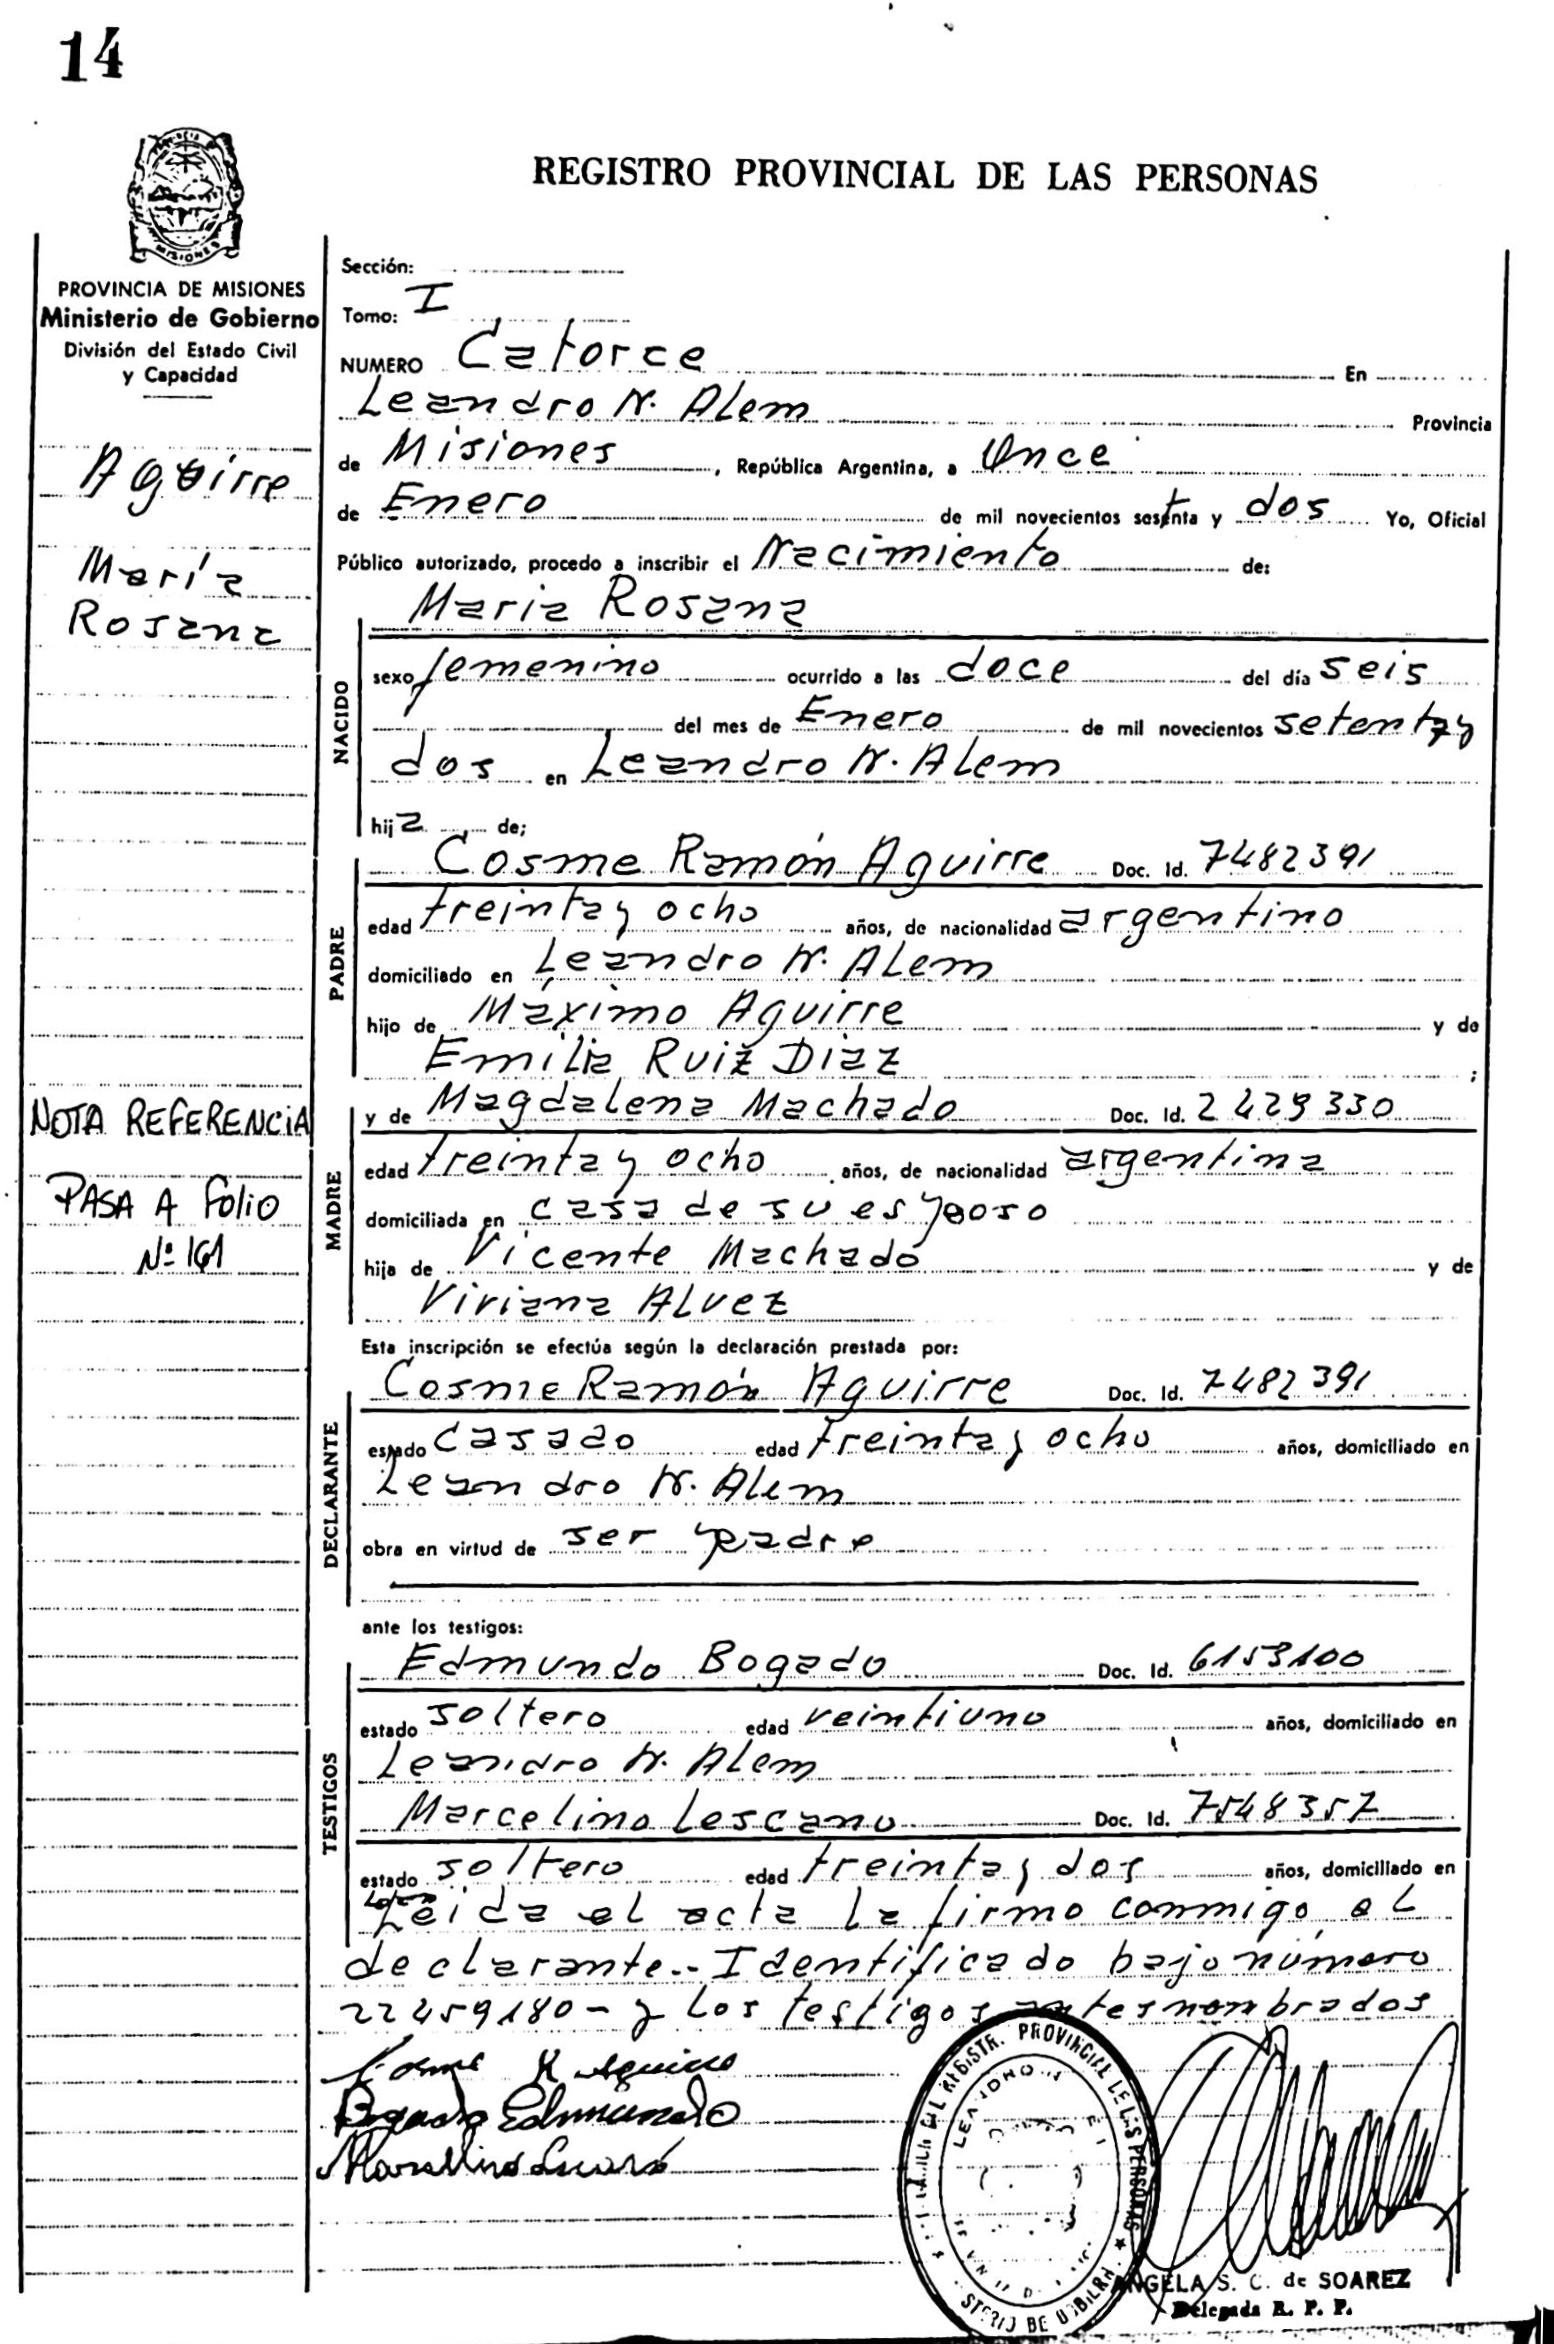 14
REGISTRO PROVINCIAL DE LAS PERSONAS
MISIONES
PROVINCIA DE MISIONES
Ministerio de Gobierno
División del Estado Civil
y Capacidad
Aguirre
María
Rosana
NOTA REFERENCIA
PASA A Folio
Nº 161
Sección:
Tomo: I
NUMERO Catorce En
Leandro N. Alem Provincia
de Misiones, República Argentina, a Once
de Enero de mil novecientos setenta y dos Yo, Oficial
Público autorizado, procedo a inscribir el Nacimiento de:
Maria Rosana
NACIDO
sexo femenino ocurrido a las doce del día seis
del mes de Enero de mil novecientos setenta y
dos en Leandro N. Alem
hija de;
PADRE
Cosme Ramón Aguirre Doc. Id. 7482391
edad treinta y ocho años, de nacionalidad argentino
domiciliado en Leandro N. Alem
hijo de Máximo Aguirre y de
Emilia Ruiz Diaz ;
MADRE
y de Magdalena Machado Doc. Id. 2429330
edad treinta y ocho años, de nacionalidad argentina
domiciliada en casa de su esposo
hija de Vicente Machado y de
Viviana Alvez
Esta inscripción se efectúa según la declaración prestada por:
DECLARANTE
Cosme Ramón Aguirre Doc. Id. 7482391
estado casado edad treinta y ocho años, domiciliado en
Leandro N. Alem
obra en virtud de ser padre
ante los testigos:
TESTIGOS
Edmundo Bogado Doc. Id. 6153100
estado soltero edad veintiuno años, domiciliado en
Leandro N. Alem
Marcelino Lescano Doc. Id. 7548357
estado soltero edad treinta y dos años, domiciliado en
Leida el acta la firmo conmigo el
declarante.- Identificado bajo número
22459180 - y los testigos antes nombrados
Bogado Edmundo
REGISTR. PROVINCIAL DE LAS PERSONAS
ANGELA S. C. de SOAREZ
Delegada R. P. P.